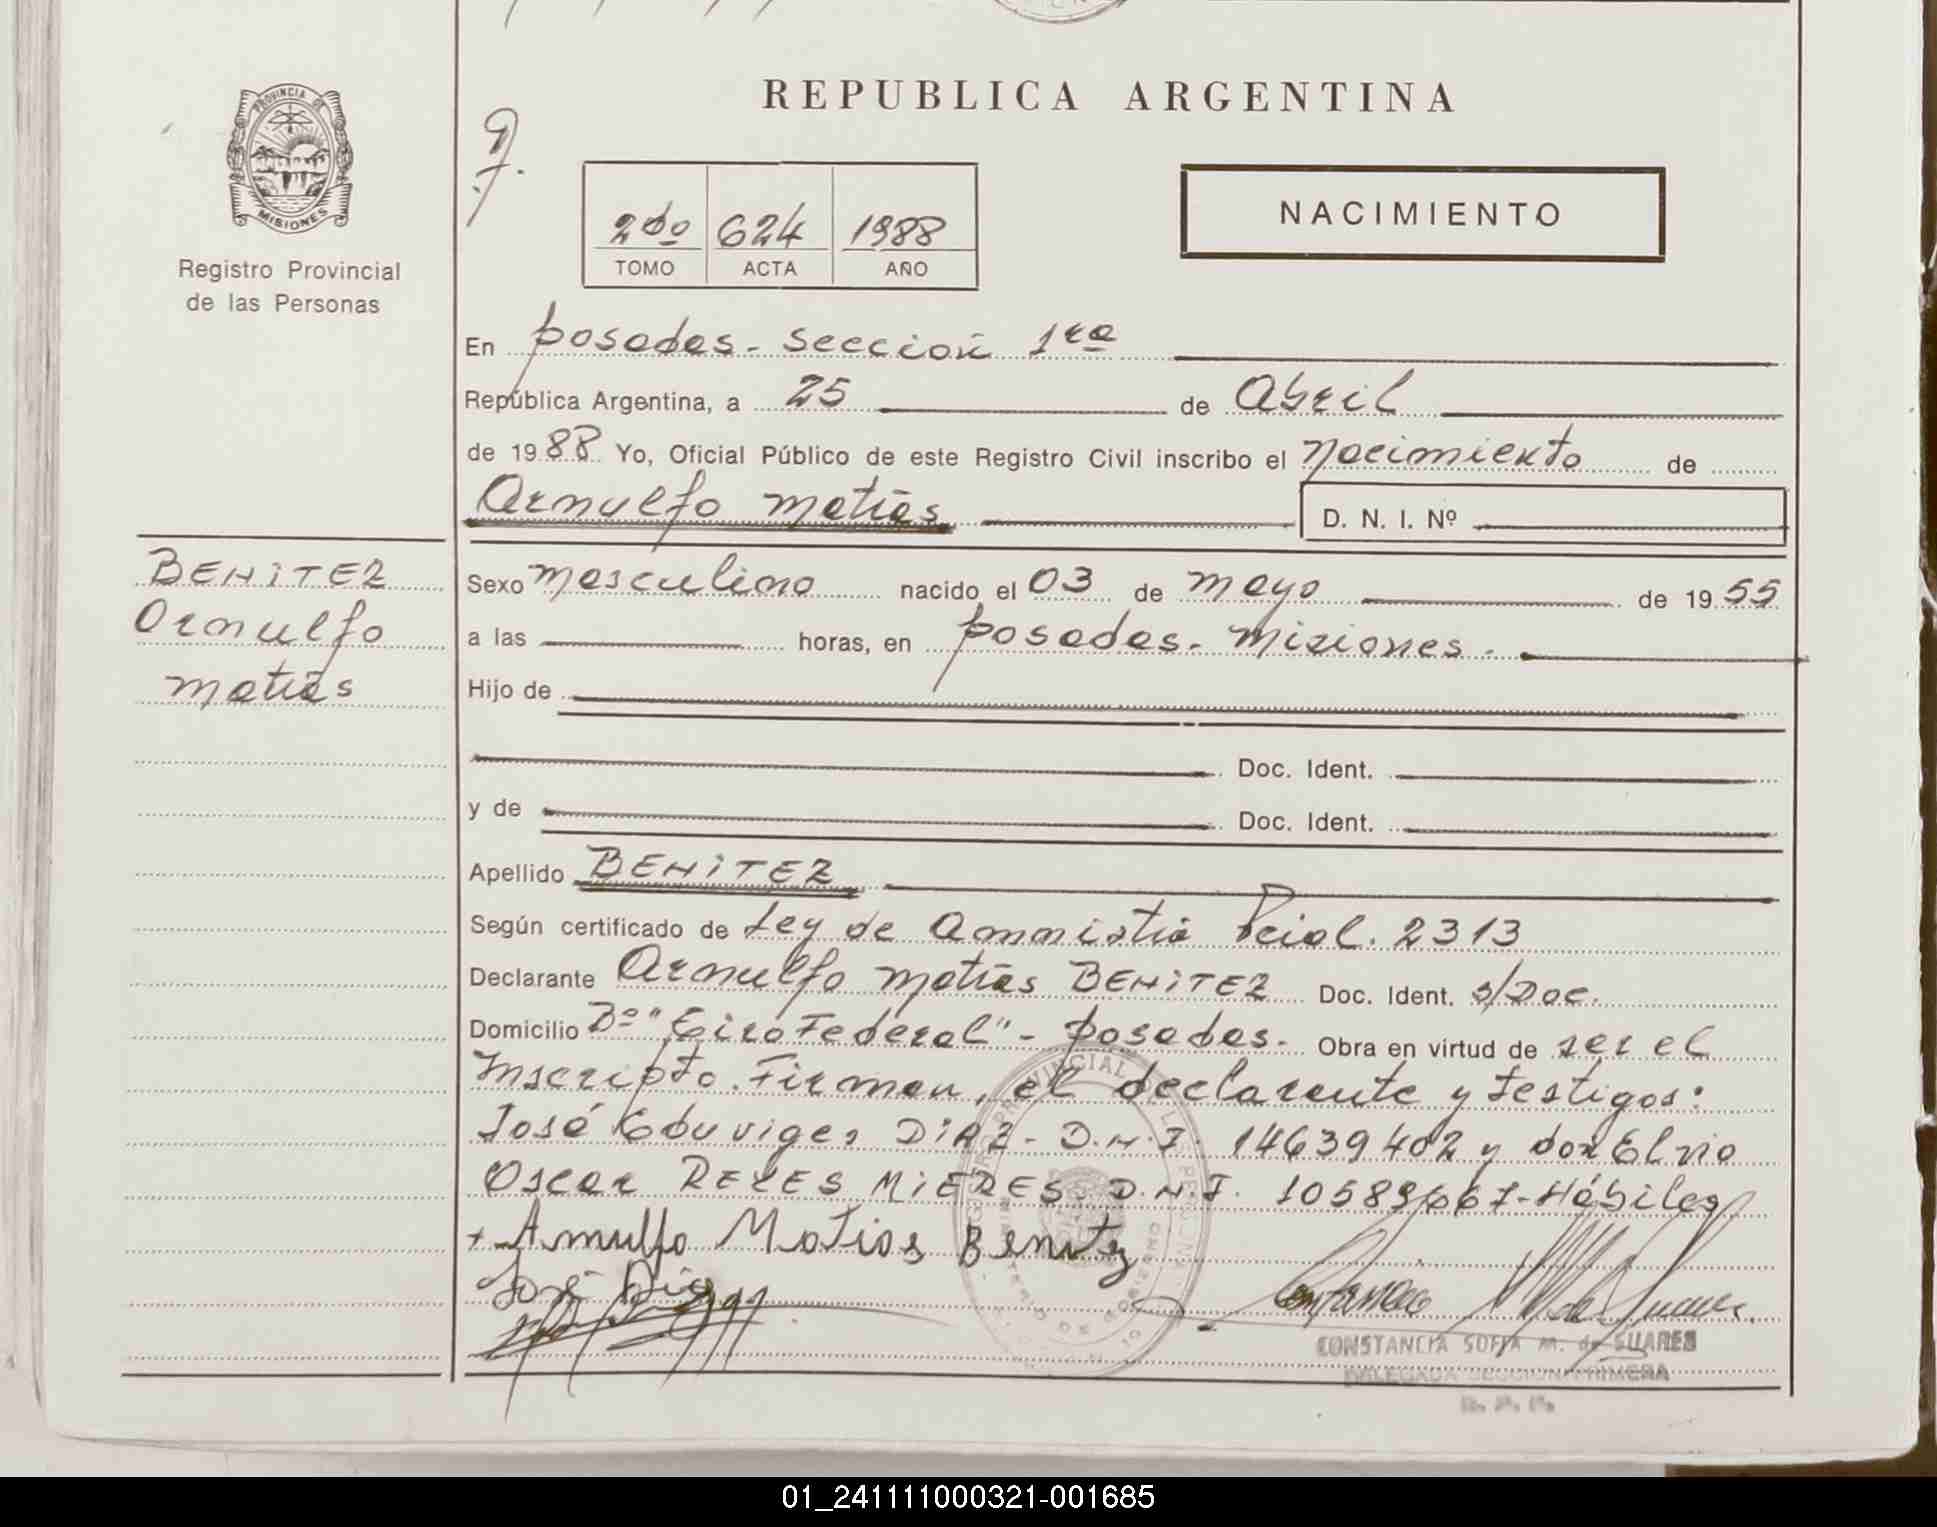 REPUBLICA ARGENTINA
PROVINCIA DE
MISIONES
Registro Provincial
de las Personas
2do 624 1988
TOMO ACTA AÑO
NACIMIENTO
En Posadas - Sección 1ra
República Argentina, a 25 de Abril
de 1988 Yo, Oficial Público de este Registro Civil inscribo el nacimiento de
Arnulfo Matías D. N. I. Nº
BENITEZ
Arnulfo
Matías
Sexo masculino nacido el 03 de mayo de 1955
a las horas, en Posadas - Misiones -
Hijo de
Doc. Ident.
y de Doc. Ident.
Apellido BENITEZ
Según certificado de Ley de Amnistía Pcial. 2313
Declarante Arnulfo Matías BENITEZ Doc. Ident. s/Doc.
Domicilio Bº "Tiro Federal" - Posadas - Obra en virtud de ser el
Inscripto. Firman, el declarante y testigos:
José Eduviges DIAZ - D.N.I. 14639402 y don Elvio
Oscar REYES MIERES D.N.I. 10589667 - Hábiles
+ Arnulfo Matias Benitez
José Diaz
CONSTANCIA SOFIA M. de SUARES
DELEGADA SECCION PRIMERA
R. P. P.
01_241111000321-001685